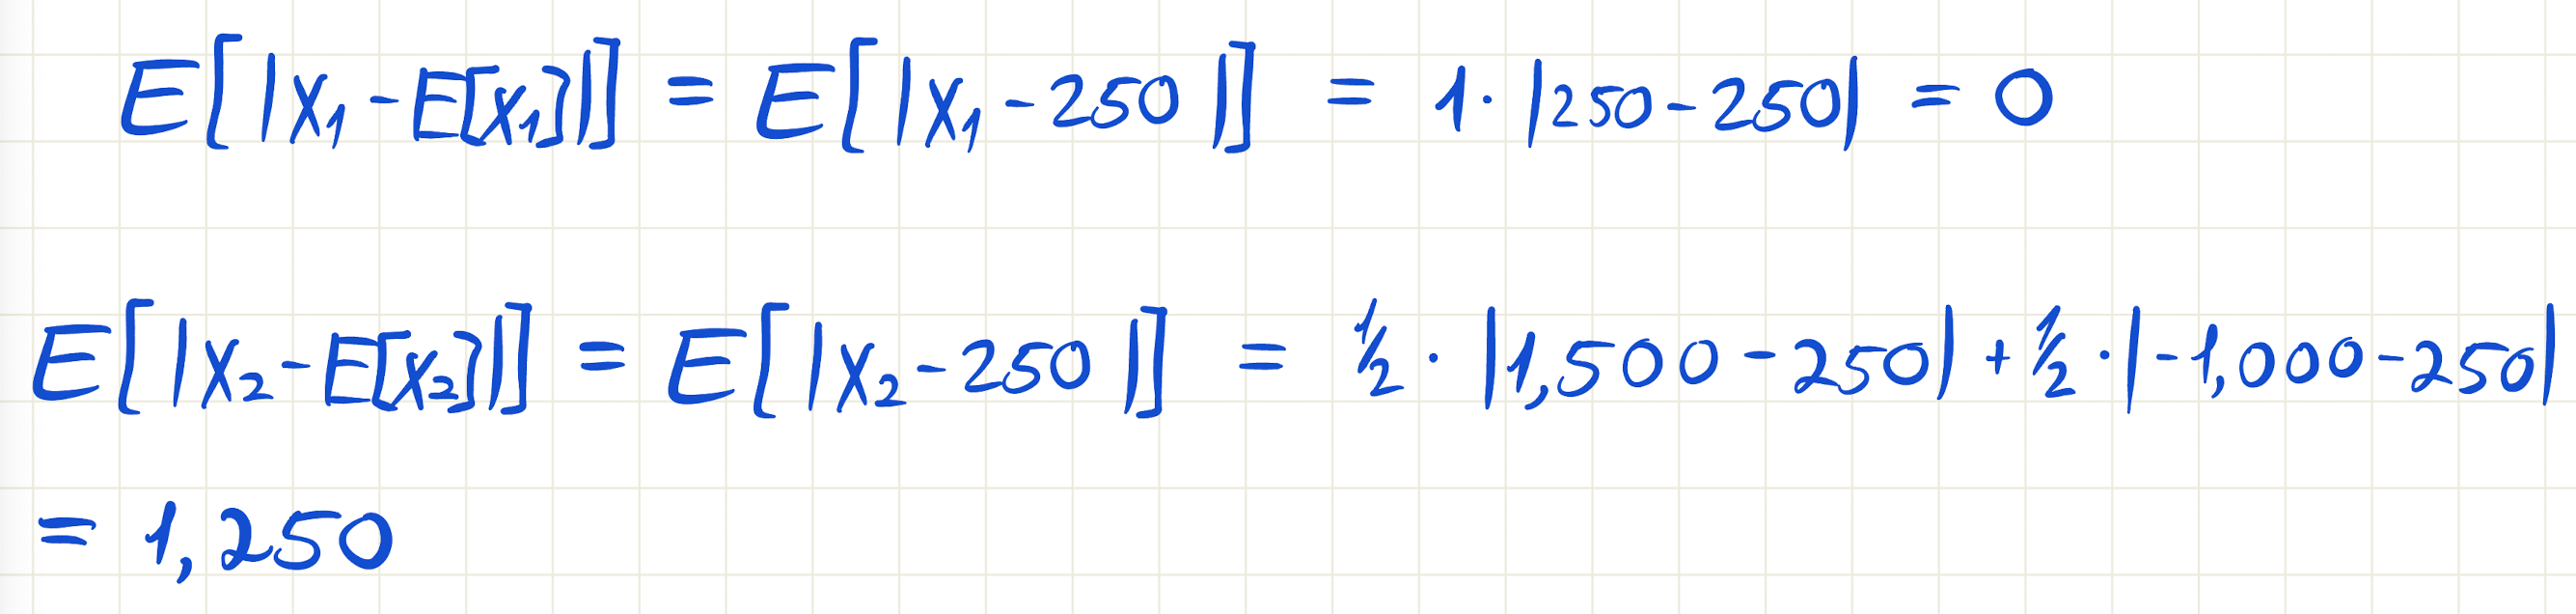 E[|X₁-E[X₁]|] = E[|X₁-250|] = 1·|250-250| = 0
E[|X₂-E[X₂]|] = E[|X₂-250|] = ½·|1,500-250|+½·|-1,000-250|
= 1,250